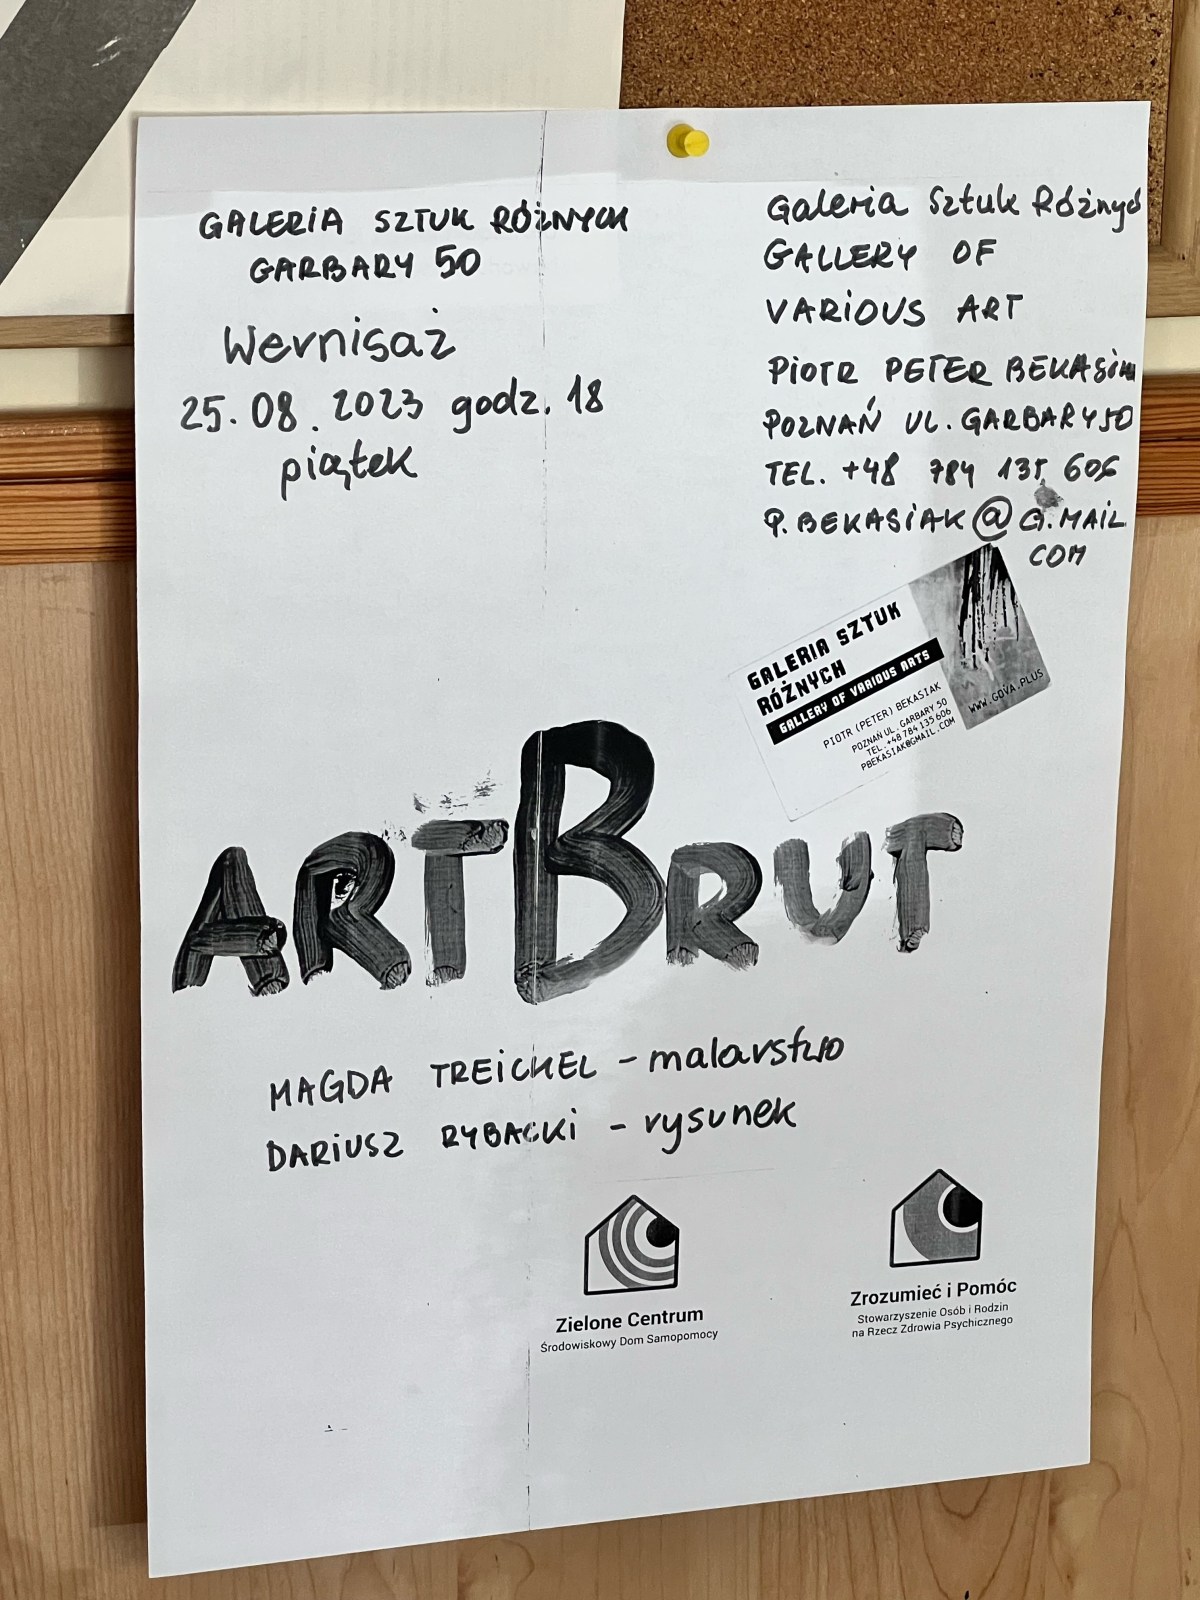 GALERIA SZTUK RÓŻNYCH
GARBARY 50
Wernisaż
25.08.2023 godz. 18
piątek
Galeria Sztuk Różnyc
GALLERY OF
VARIOUS ART
PIOTR PETER BEKASIAK
POZNAŃ UL. GARBARY 50
TEL. +48 784 135 606
P.BEKASIAK@G.MAIL
COM
GALERIA SZTUK
RÓŻNYCH
GALLERY OF VARIOUS ARTS
PIOTR (PETER) BEKASIAK
POZNAŃ UL. GARBARY 50
TEL. +48 784 135 606
PBEKASIAK@GMAIL.COM
WWW.GOVA.PLUS
ARTBRUT
MAGDA TREICHEL - malarstwo
DARIUSZ RYBACKI - rysunek
Zielone Centrum
Środowiskowy Dom Samopomocy
Zrozumieć i Pomóc
Stowarzyszenie Osób i Rodzin
na Rzecz Zdrowia Psychicznego